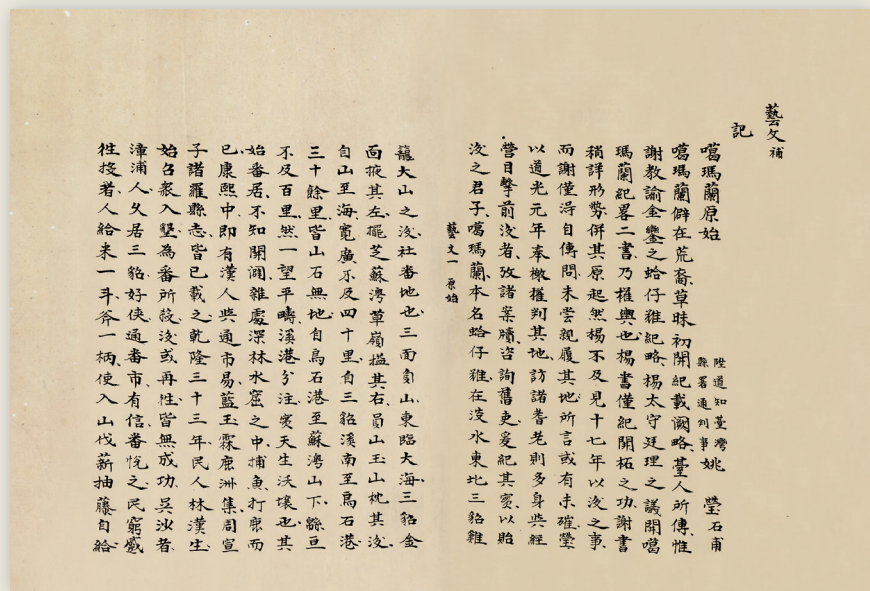 藝文補
記
噶瑪蘭原始
陞道知臺灣縣署通判事姚 瑩石甫
噶瑪蘭僻在荒裔草昧初開紀載闕略臺人所傳惟
謝教諭金鑾之蛤仔雅紀略楊太守廷理之議開噶
瑪蘭紀畧二書乃權輿也楊書僅紀開柘之功謝書
稍詳形勢併其原起然楊不及見十七年以後之事
而謝僅淂自傳問未尝親履其地所言或有未確瑩
以道光元年奉檄權判其地訪諸耆老則多身與經
營目擊前後者攷諸案牘咨詢舊吏爰紀其實以貽
後之君子噶瑪蘭本名蛤仔雅在淡水東北三貂雞
藝文一 原始
籠大山之後社番地也三面負山東臨大海三貂金
面掖其左擺芝蘇澳草嶺搤其右員山玉山枕其後
自山至海寛廣不及四十里自三貂溪南至烏石港
三十餘里皆山石無地自烏石港至蘇澳山下緜亘
不及百里然一望平疇溪港分注實天生沃壤也其
始番居不知開闢雜處深林水窟之中捕魚打鹿而
已康熙中即有漢人與通市易藍玉霖鹿洲集周宣
子諸羅縣志皆已載之乾隆三十三年民人林漢生
始召衆入墾為番所殺後或再徃皆無成功吳沙者
漳浦人久居三貂好俠通番市有信番悅之民窮蹙
徃投者人給米一斗斧一柄使入山伐薪抽藤自給